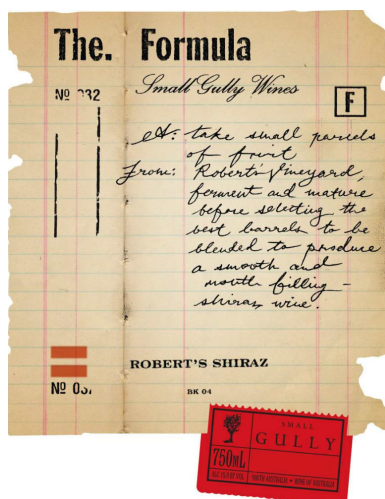 The. Formula
Small Gully Wines
Nº 032
F
A: take small parcels
of fruit
From: Robert's Vineyard,
ferment and mature
before selecting the
best barrels to be
blended to produce
a smooth and
mouth filling -
shiraz wine.
ROBERT'S SHIRAZ
Nº 03
BK 04
SMALL
GULLY
750mL
SOUTH AUSTRALIA • WINE OF AUSTRALIA